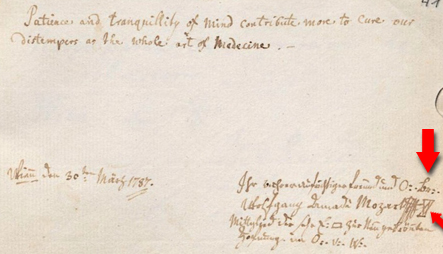 Patience and tranquillity of mind contribute more to cure our
distempers as the whole art of Medecine. —
Wien den 30:ten März 1787.
Ihr wahrer aufrichtiger freund und O:. Br:.
Wolfgang Amadè Mozart
Mitglied der □ zur Neugekrönten
Hofnung im Or:. v:. W:.